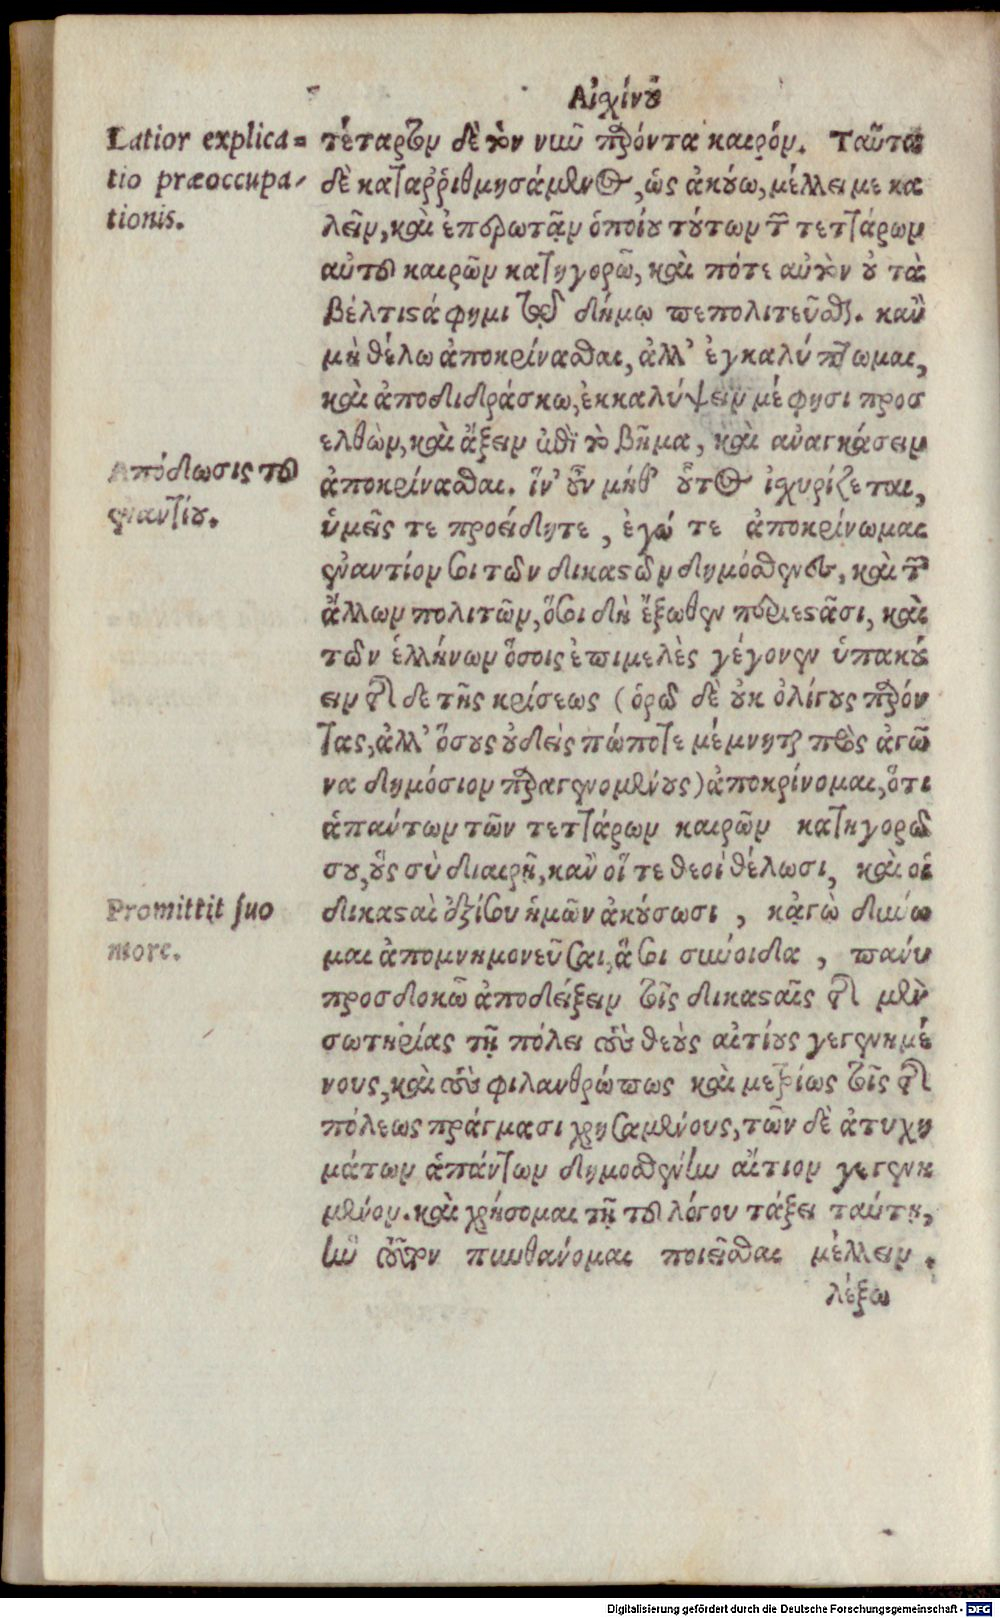 Αἰσχίνου
Latior explica=
tio præoccupa-
tionis.
τέταρτον δὲ τὸν νῦν παρόντα καιρόν. Ταῦτα
δὲ καταῤῥιθμησάμενος, ὡς ἀκούω, μέλλει με κα
λεῖν, καὶ ἐπερωτᾶν ὁποίου τούτων τῶν τετ̣τάρων
αὐτοῦ καιρῶν κατηγορῶ, καὶ πότε αὐτὸν οὐ τὰ
βέλτιστά φημι τῷ δήμῳ πεπολιτεῦσθαι. κἂν
μὴ θέλω ἀποκρίνασθαι, ἀλλ' ἐγκαλύπτωμαι,
καὶ ἀποδιδράσκω, ἐκκαλύψειν μέ φησι προσ
ελθὼν, καὶ ἄξειν ἐπὶ τὸ βῆμα, καὶ ἀναγκάσειν
Ἀπόδωσις τοῦ
ἐναντίου.
ἀποκρίνασθαι. ἵν' οὖν μήθ' οὗτος ἰσχυρίζεται,
ὑμεῖς τε προείδητε, ἐγώ τε ἀποκρίνωμαι
ἐναντίον σοι τῶν δικαστῶν δημόσθενες, καὶ τῶν
ἄλλων πολιτῶν, ὅσοι δὴ ἔξωθεν περιεστᾶσι, καὶ
τῶν ἑλλήνων ὅσοις ἐπιμελὲς γέγονεν ὑπακού
ειν τῆσδε τῆς κρίσεως (ὁρῶ δὲ οὐκ ὀλίγους παρόν
τας, ἀλλ' ὅσους οὐδεὶς πώποτε μέμνηται πρὸς ἀγῶ
να δημόσιον παραγενομένους) ἀποκρίνομαι, ὅτι
ἁπάντων τῶν τεττάρων καιρῶν κατηγορῶ
σου, οὓς σὺ διαιρῇ, κἂν οἵ τε θεοὶ θέλωσι, καὶ οἱ
Promittit suo
more.
δικασταὶ ἐξίσου ἡμῶν ἀκούσωσι, κἀγὼ δύνω
μαι ἀπομνημονεῦσαι, ἅ σοι σύνοιδα, πάνυ
προσδοκῶ ἀποδείξειν τοῖς δικασταῖς τῆς μὲν
σωτηρίας τῇ πόλει τοὺς θεοὺς αἰτίους γεγενημέ
νους, καὶ τοὺς φιλανθρώπως καὶ μετρίως τοῖς τῆς
πόλεως πράγμασι χρησαμένους, τῶν δὲ ἀτυχη
μάτων ἁπάντων δημοσθένην αἴτιον γεγενη
μένον. καὶ χρήσομαι τῇ τοῦ λόγου τάξει ταύτῃ,
ἣν τοῦτον πυνθάνομαι ποιεῖσθαι μέλλειν.
λέξω
Digitalisierung gefördert durch die Deutsche Forschungsgemeinschaft - DFG